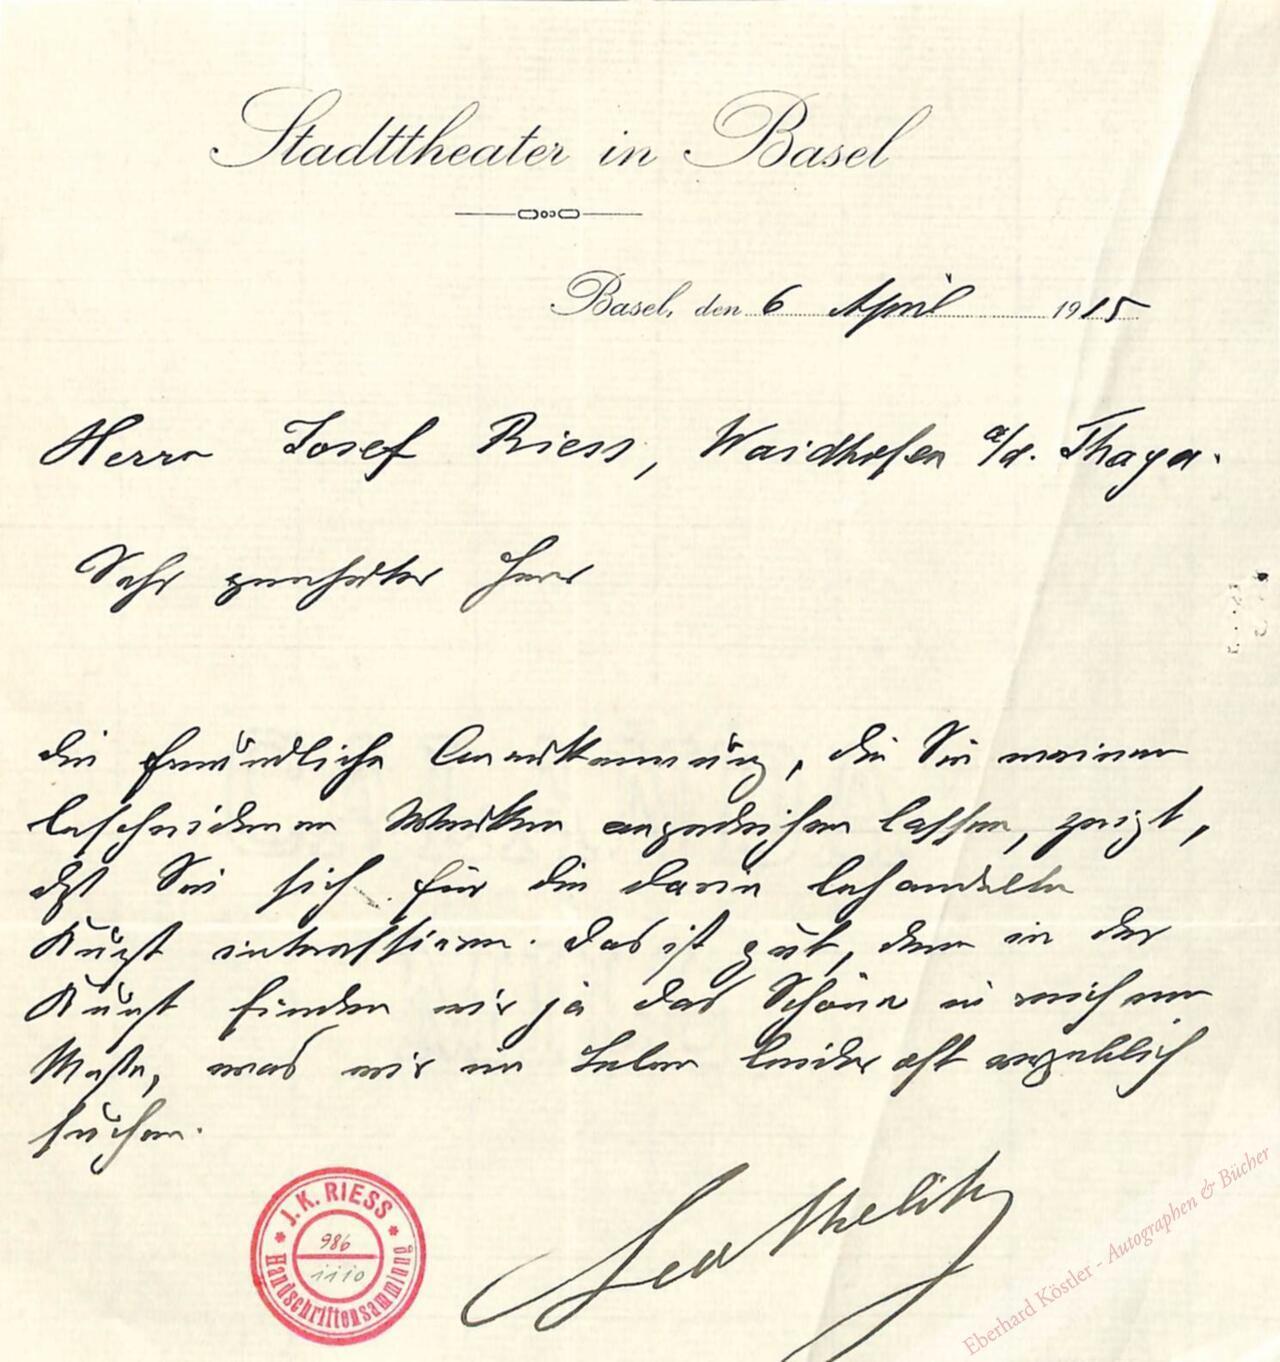 Stadttheater in Basel
Basel, den 6 April 1915
Herrn Josef Riess, Waidhofen a/d. Thaya.
Sehr geehrter Herr
die freundliche Anerkennung, die Sie meinen
bescheidenen Werken angedeihen lassen, zeigt,
dß Sie sich für die darin behandelte
Kunst interessieren. Das ist gut, denn in der
Kunst finden wir ja das Schöne in reichem
Maße, was wir im Leben leider oft vergeblich
suchen.
Leo Melitz
J. K. RIESS
Handschriftensammlung
986
1110
Eberhard Köstler - Autographen & Bücher